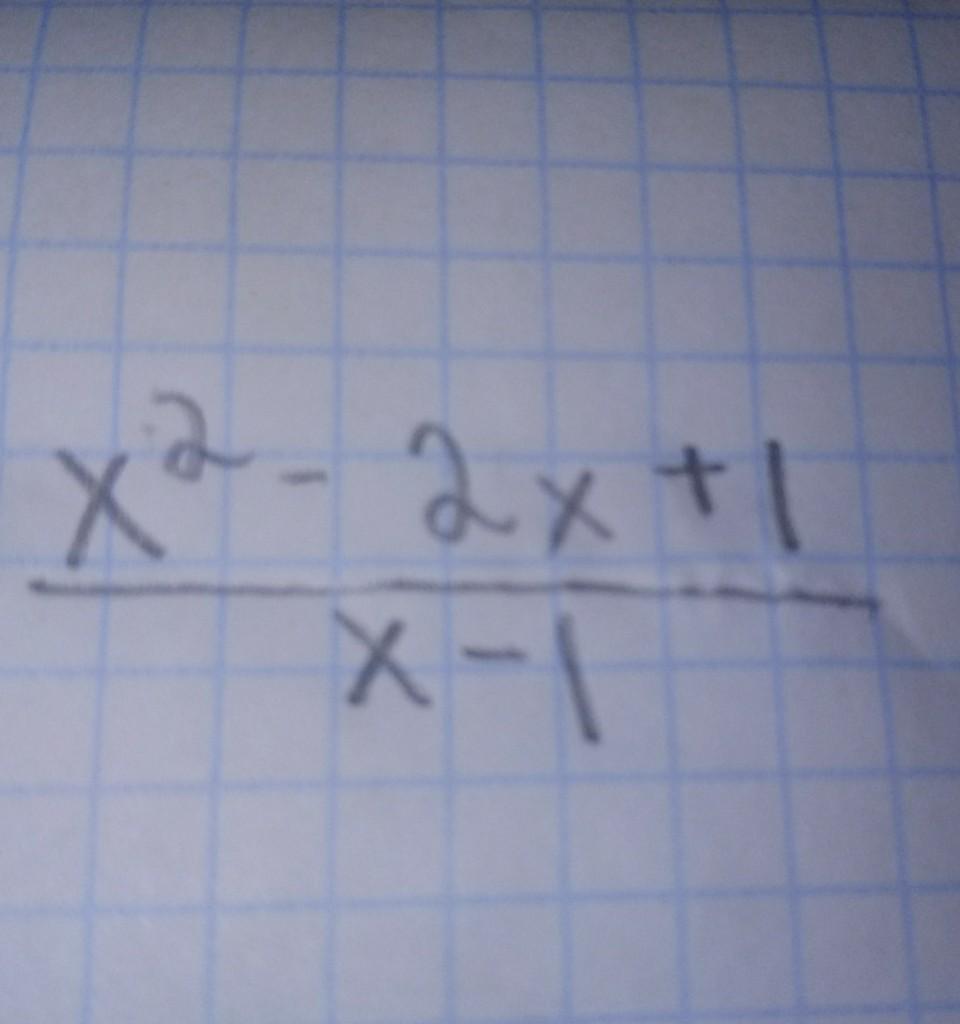 x² - 2x + 1
x - 1